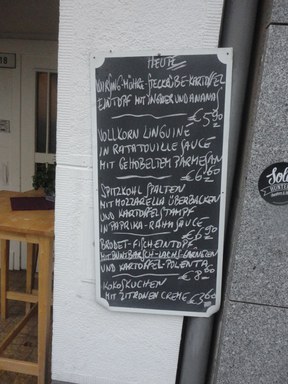 HEUTE
WIRSING-MÖHRE-STECKRÜBE-KARTOFFEL
EINTOPF MIT INGWER UND ANANAS
€ 5,90
VOLLKORN LINGUINE
IN RATATOUILLE SAUCE
MIT GEHOBELTEN PARMESAN
€ 6,60
SPITZKOHL SPALTEN
MIT MOZZARELLA ÜBERBACKEN
UND KARTOFFELSTAMPF
IN PAPRIKA-RAHMSAUCE
€ 6,90
BRODET-FISCHEINTOPF
MIT BUNTBARSCH-LACHS-GARNELEN
UND KARTOFFEL-POLENTA
€ 8,60
KOKOSKUCHEN
MIT ZITRONEN CREME € 3,60
18